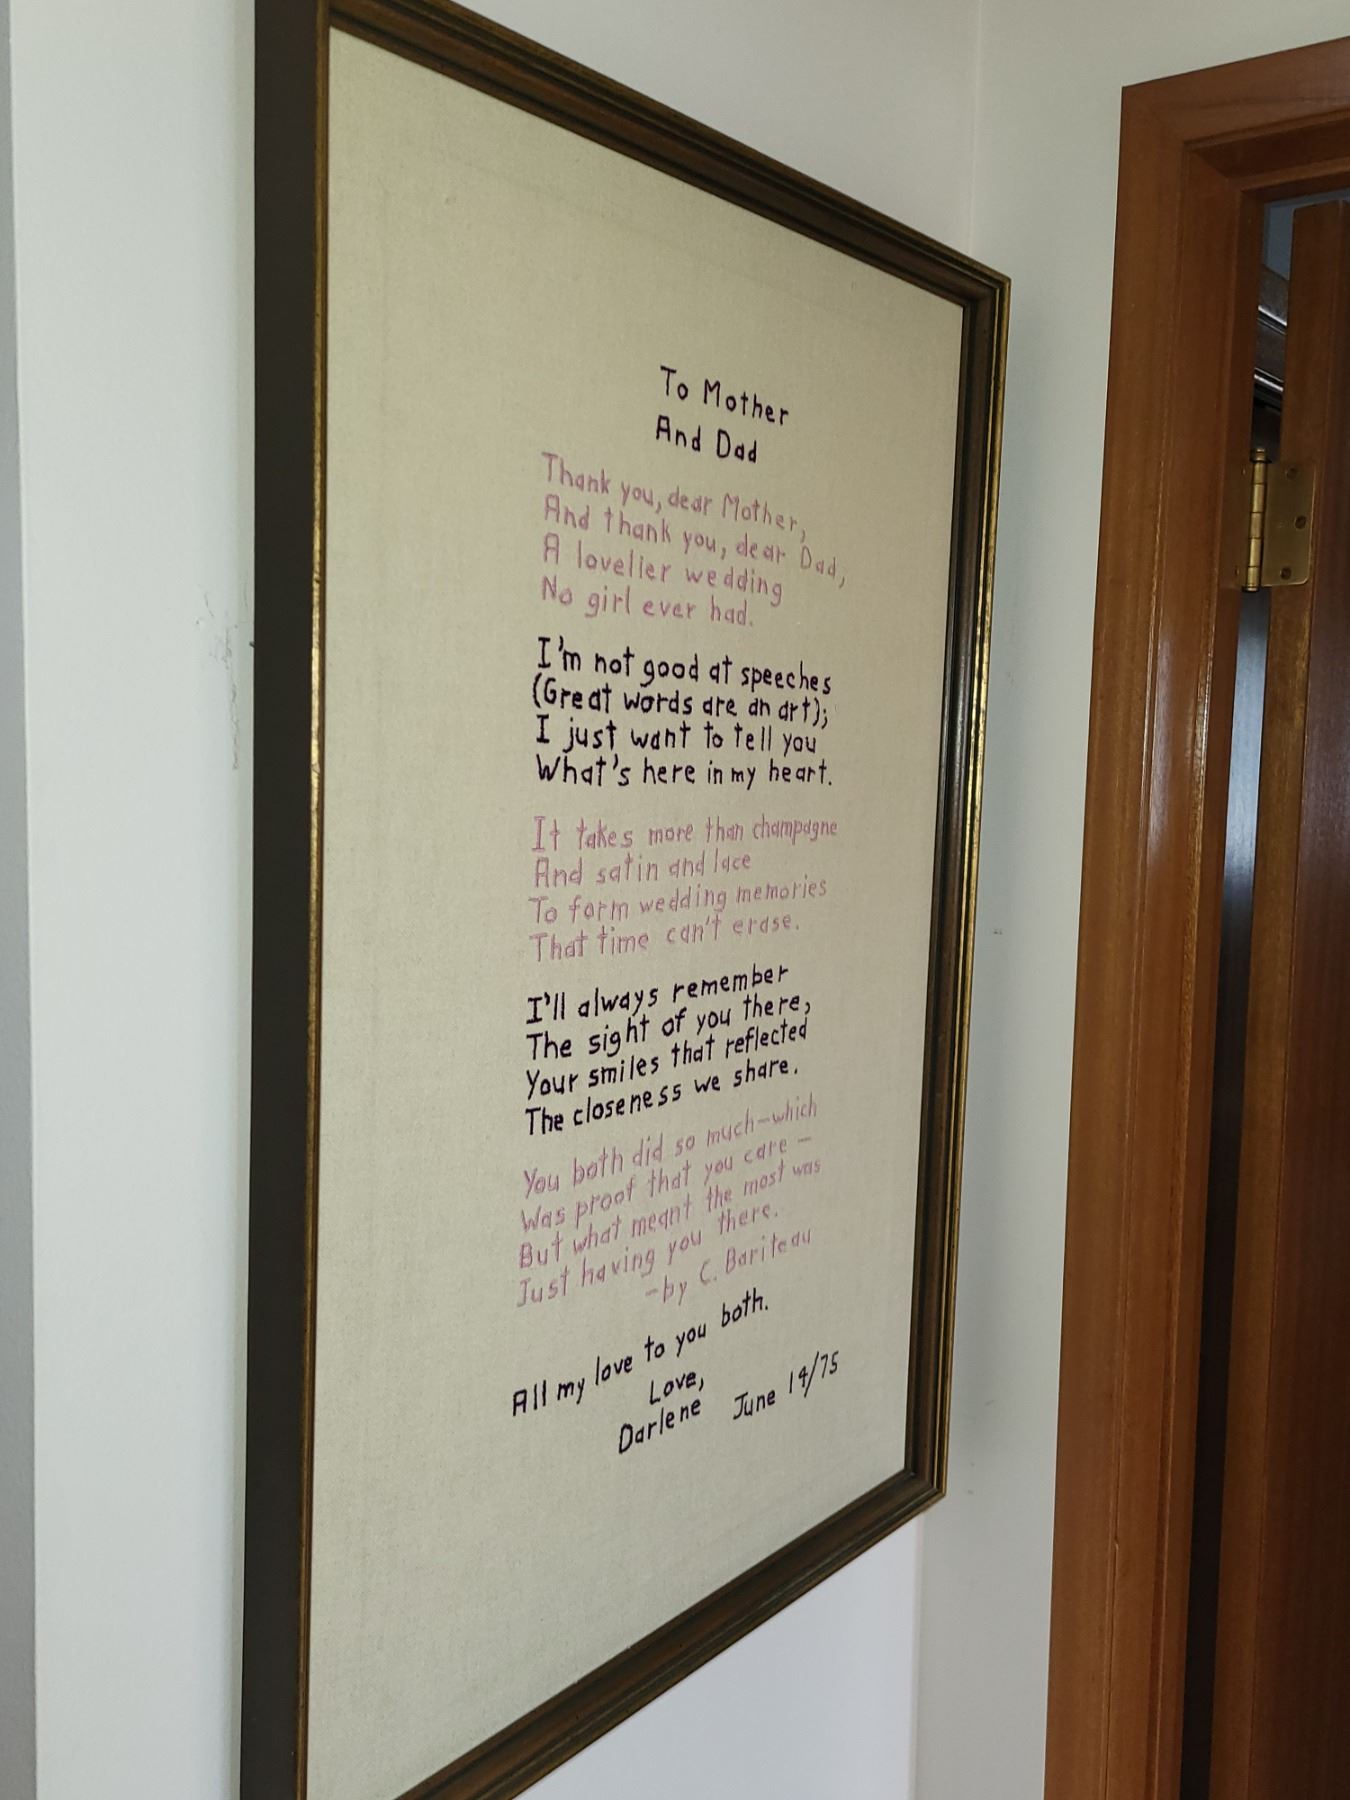 To Mother
And Dad
Thank you, dear Mother,
And thank you, dear Dad,
A lovelier wedding
No girl ever had.
I'm not good at speeches
(Great words are an art);
I just want to tell you
What's here in my heart.
It takes more than champagne
And satin and lace
To form wedding memories
That time can't erase.
I'll always remember
The sight of you there,
Your smiles that reflected
The closeness we share.
You both did so much—which
Was proof that you care —
But what meant the most was
Just having you there.
—by C. Bariteau
All my love to you both.
Love,
Darlene June 14/75